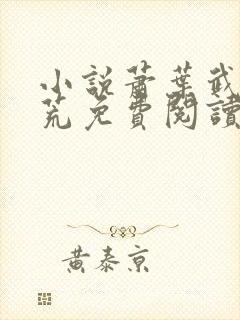 小說蕭葉武
荒免費閱讀
黃泰京